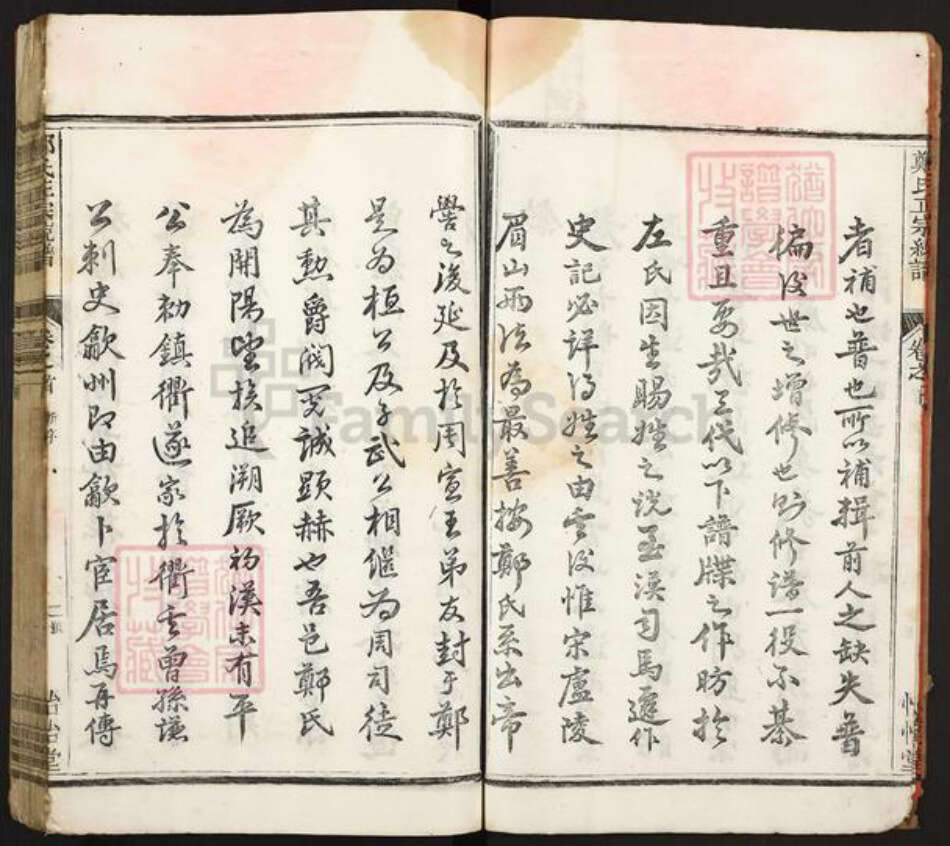 者補也普也所以補輯前人之缺失普
徧後世之增修也則修譜一役不綦
重且要哉三代以下譜牒之作昉於
左氏因生賜姓之說至漢司馬遷作
史記必詳得姓之由其後惟宋廬陵
眉山兩法為最善按鄭氏系出帝
嚳之後延及於周宣王弟友封于鄭
是為桓公及子武公相繼為周司徒
其勲爵閥閱誠顯赫也吾邑鄭氏
為開陽望族追溯厥初漢末有平
公奉勅鎮衢遂家於衢其曾孫謙
公刺史歙州即由歙卜宦居焉再傳
鄭氏正宗統譜
卷之首
怡怡堂
FamilySearch